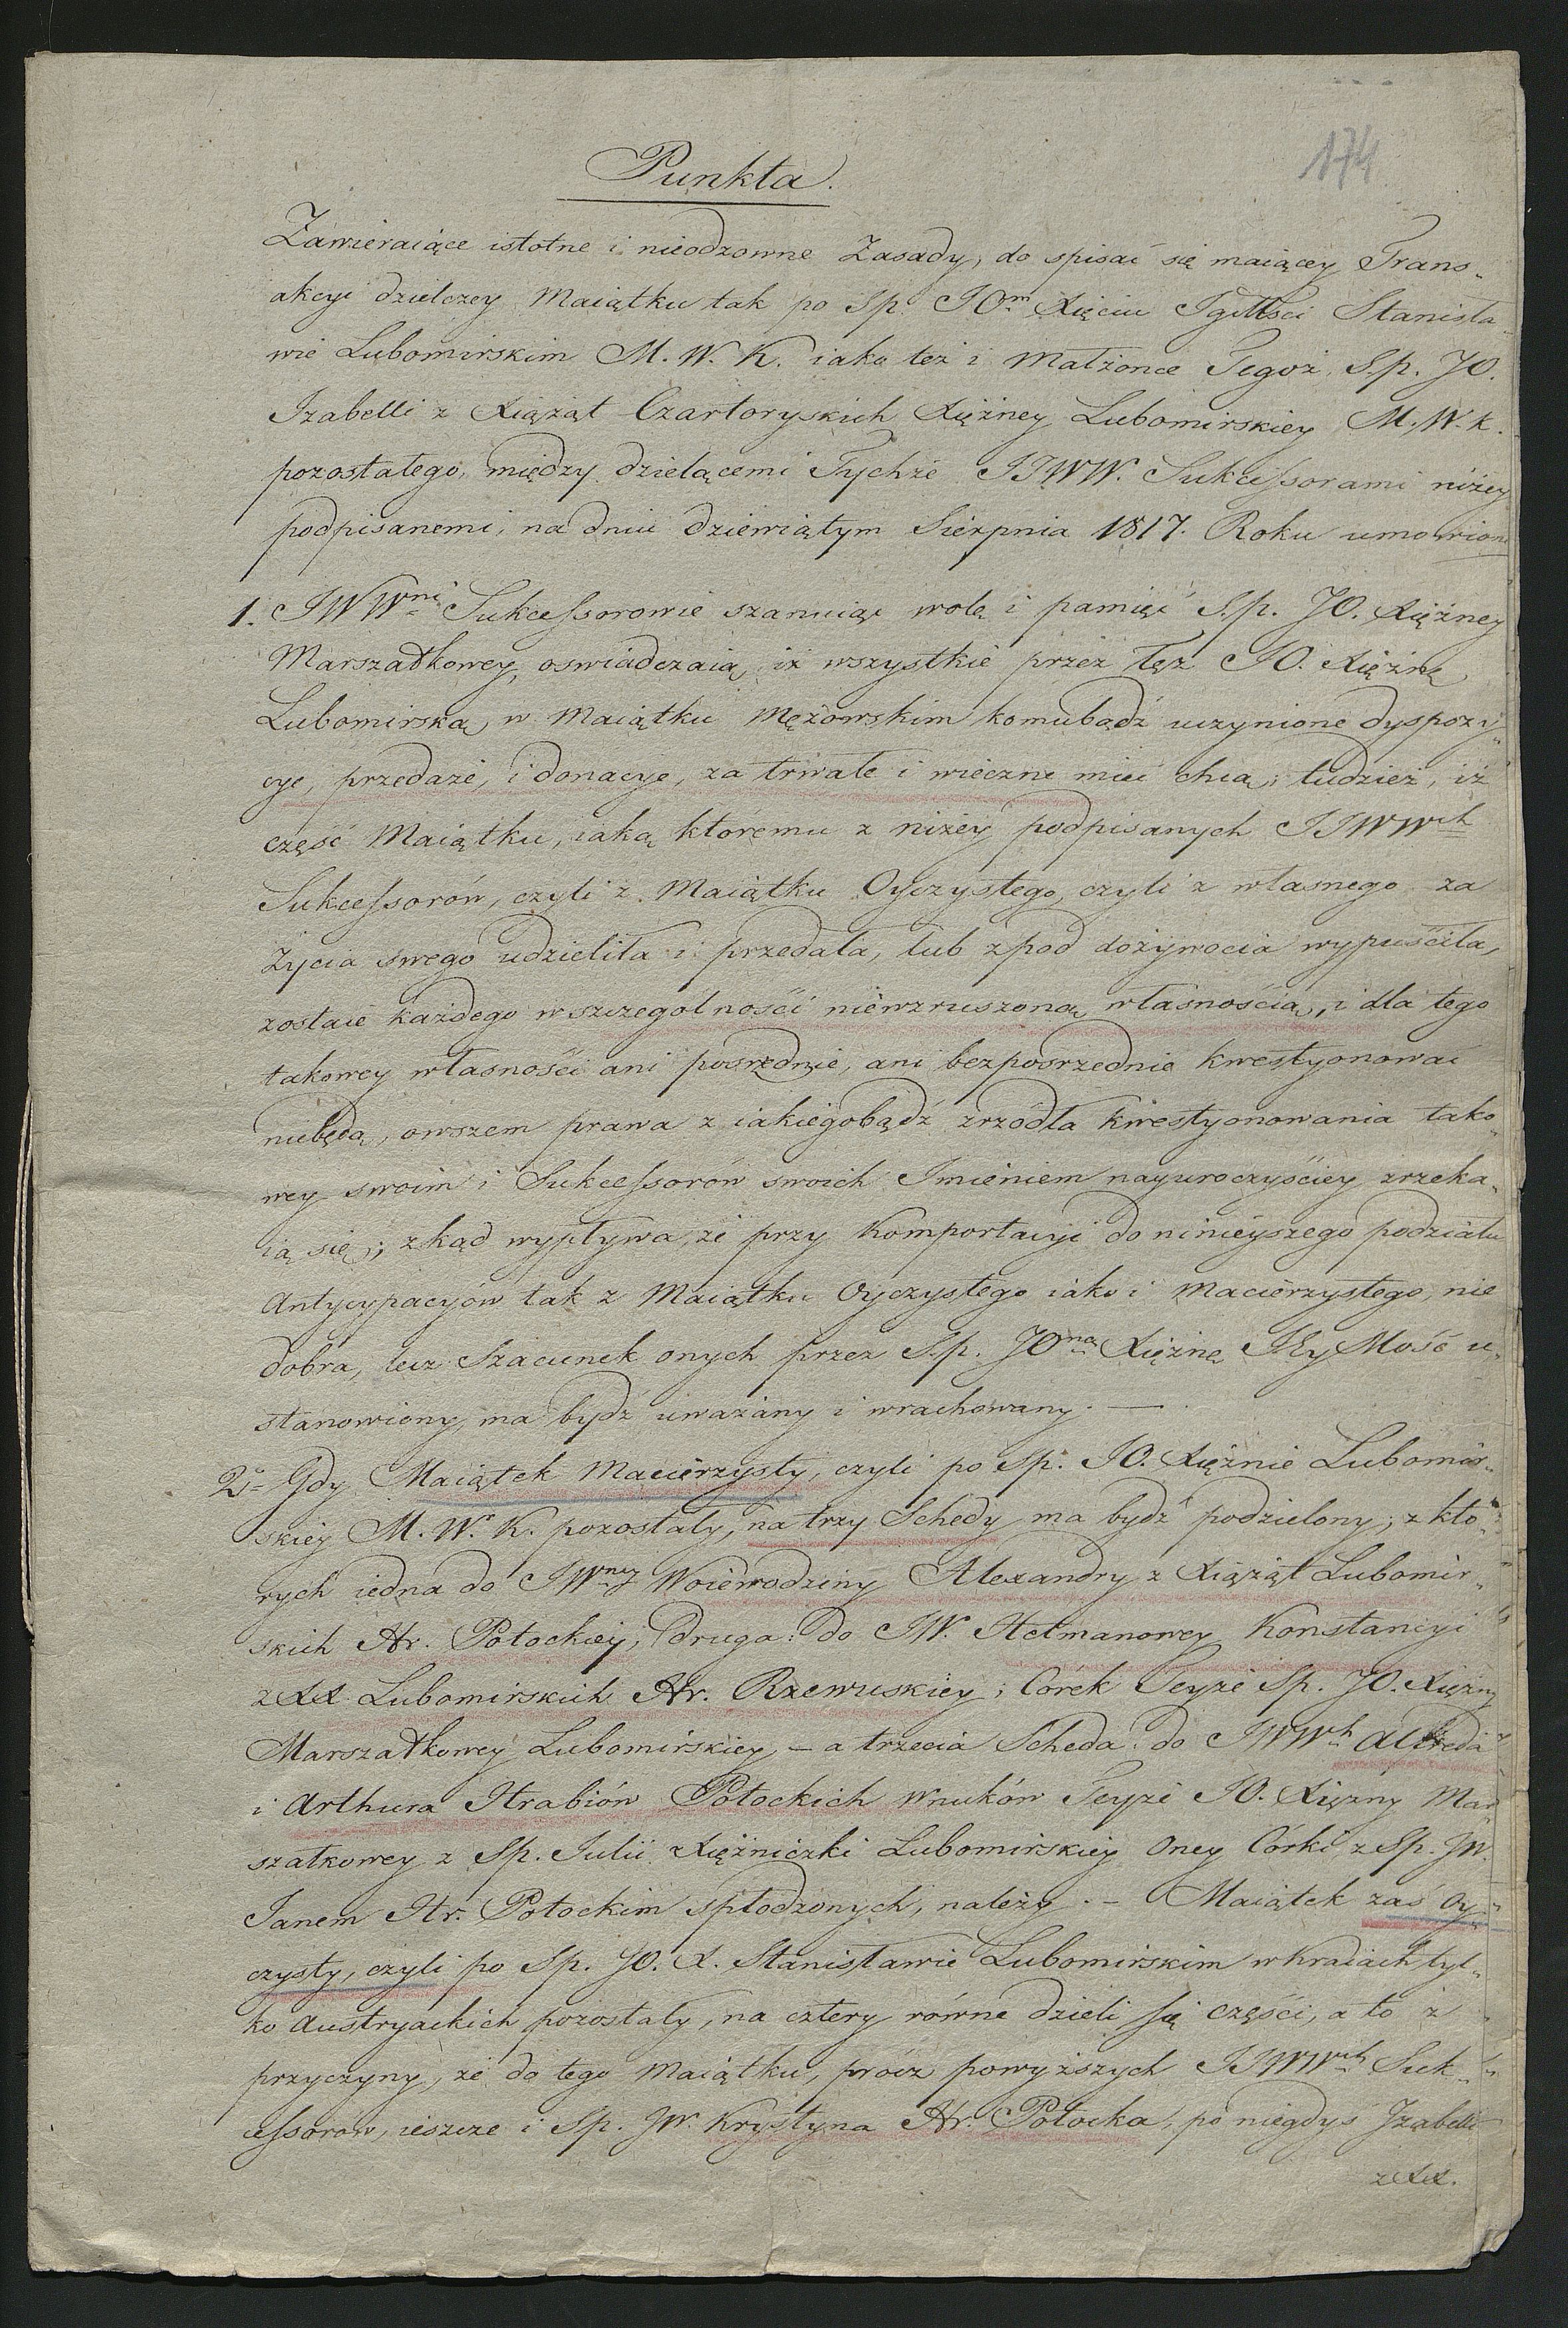 174
Punkta.
Zawieraiące istotne i nieodzowne Zasady, do spisać się maiącey Trans„
akcyi dzielczey Maiątku tak po Sp. JOm Xięciu JgMsci Stanisła„
wie Lubomirskim M. W. K. iako też i Małżonce Tegoż, S.p. JO.
Izabelli z Xiążąt Czartoryskich Xiężney Lubomirskiey M. W. K.
pozostałego, między dzielącemi Tychże JJWW. Sukcessorami niżey
podpisanemi, na dniu dziewiątym Sierpnia 1817. Roku umowione
1. JWWni Sukcessorowie szanuiąc wolą i pamięć S.p. JO. Xiężney
Marszałkowey, oswiadczaią, iż wszystkie przez Tęż JO. Xiężnę
Lubomirską, w Maiątku Mężowskim komubądź uczynione dyspozy„
cye, przedaże, i donacye, za trwałe i wieczne mieć chcą; tudzież, iż
część Maiątku, iaką któremu z niżey podpisanych JJWWch
Sukcessorów, czyli z Maiątku Oyczystego, czyli z własnego za
Życia swego udzieliła i przedała, lub zpod dożywocia wypuściła,
zostaie każdego wszczególności niewzruszoną własnością, i dla tego
takowey własności ani posrednie, ani bezposrzednie kwestyonować
niebędą, owszem prawa z iakiegobądź zrzódła kwestyonowania tako„
wey swoim i Sukcessorów swoich Imieniem nayuroczyściey zrzeka„
ią się; zkąd wypływa, że przy Komportacyi do ninieyszego podziału
Antycypacyów tak z Maiątku Oyczystego iako i Macierzystego, nie
dobra, lecz Szacunek onych przez S.p. JOną Xiężnę JEy Mość u„
stanowiony, ma bydź uważany i wrachowany. —
2o Gdy Maiątek Macierzysty, czyli po Sp. JO. Xiężnie Lubomir„
skiey M. W. K. pozostały, na trzy Schedy ma bydź podzielony; z któ„
rych iedna do JWney Woiewodziny Alexandry z Xiążąt Lubomir„
skich Hr. Potockiey, druga: do JW. Hetmanowey Konstancyi
z XX Lubomirskich Hr. Rzewuskiey; Córek Teyże Sp. JO. Xiężny
Marszałkowey Lubomirskiey, — a trzecia Scheda: do JWWch Alfreda
i Arthura Hrabiów Potockich Wnuków Teyże JO. Xiężny Mar„
szałkowey z Sp. Julii Xiężniczki Lubomirskiey Oney Córki z Sp. JW.
Janem Hr. Potockim spłodzonych, należy. — Maiątek zaś Oy„
czysty, czyli po Sp. JO. X. Stanisławie Lubomirskim w kraiach tyl„
ko Austryackich pozostały, na cztery równe dzieli się części, a to z
przyczyny, że do tego Maiątku, prócz powyższych JJWWch Suk„
cessorów, ieszcze i Sp. JW. Krystyna Hr. Potocka, po niegdyś Izabelli
z XX.